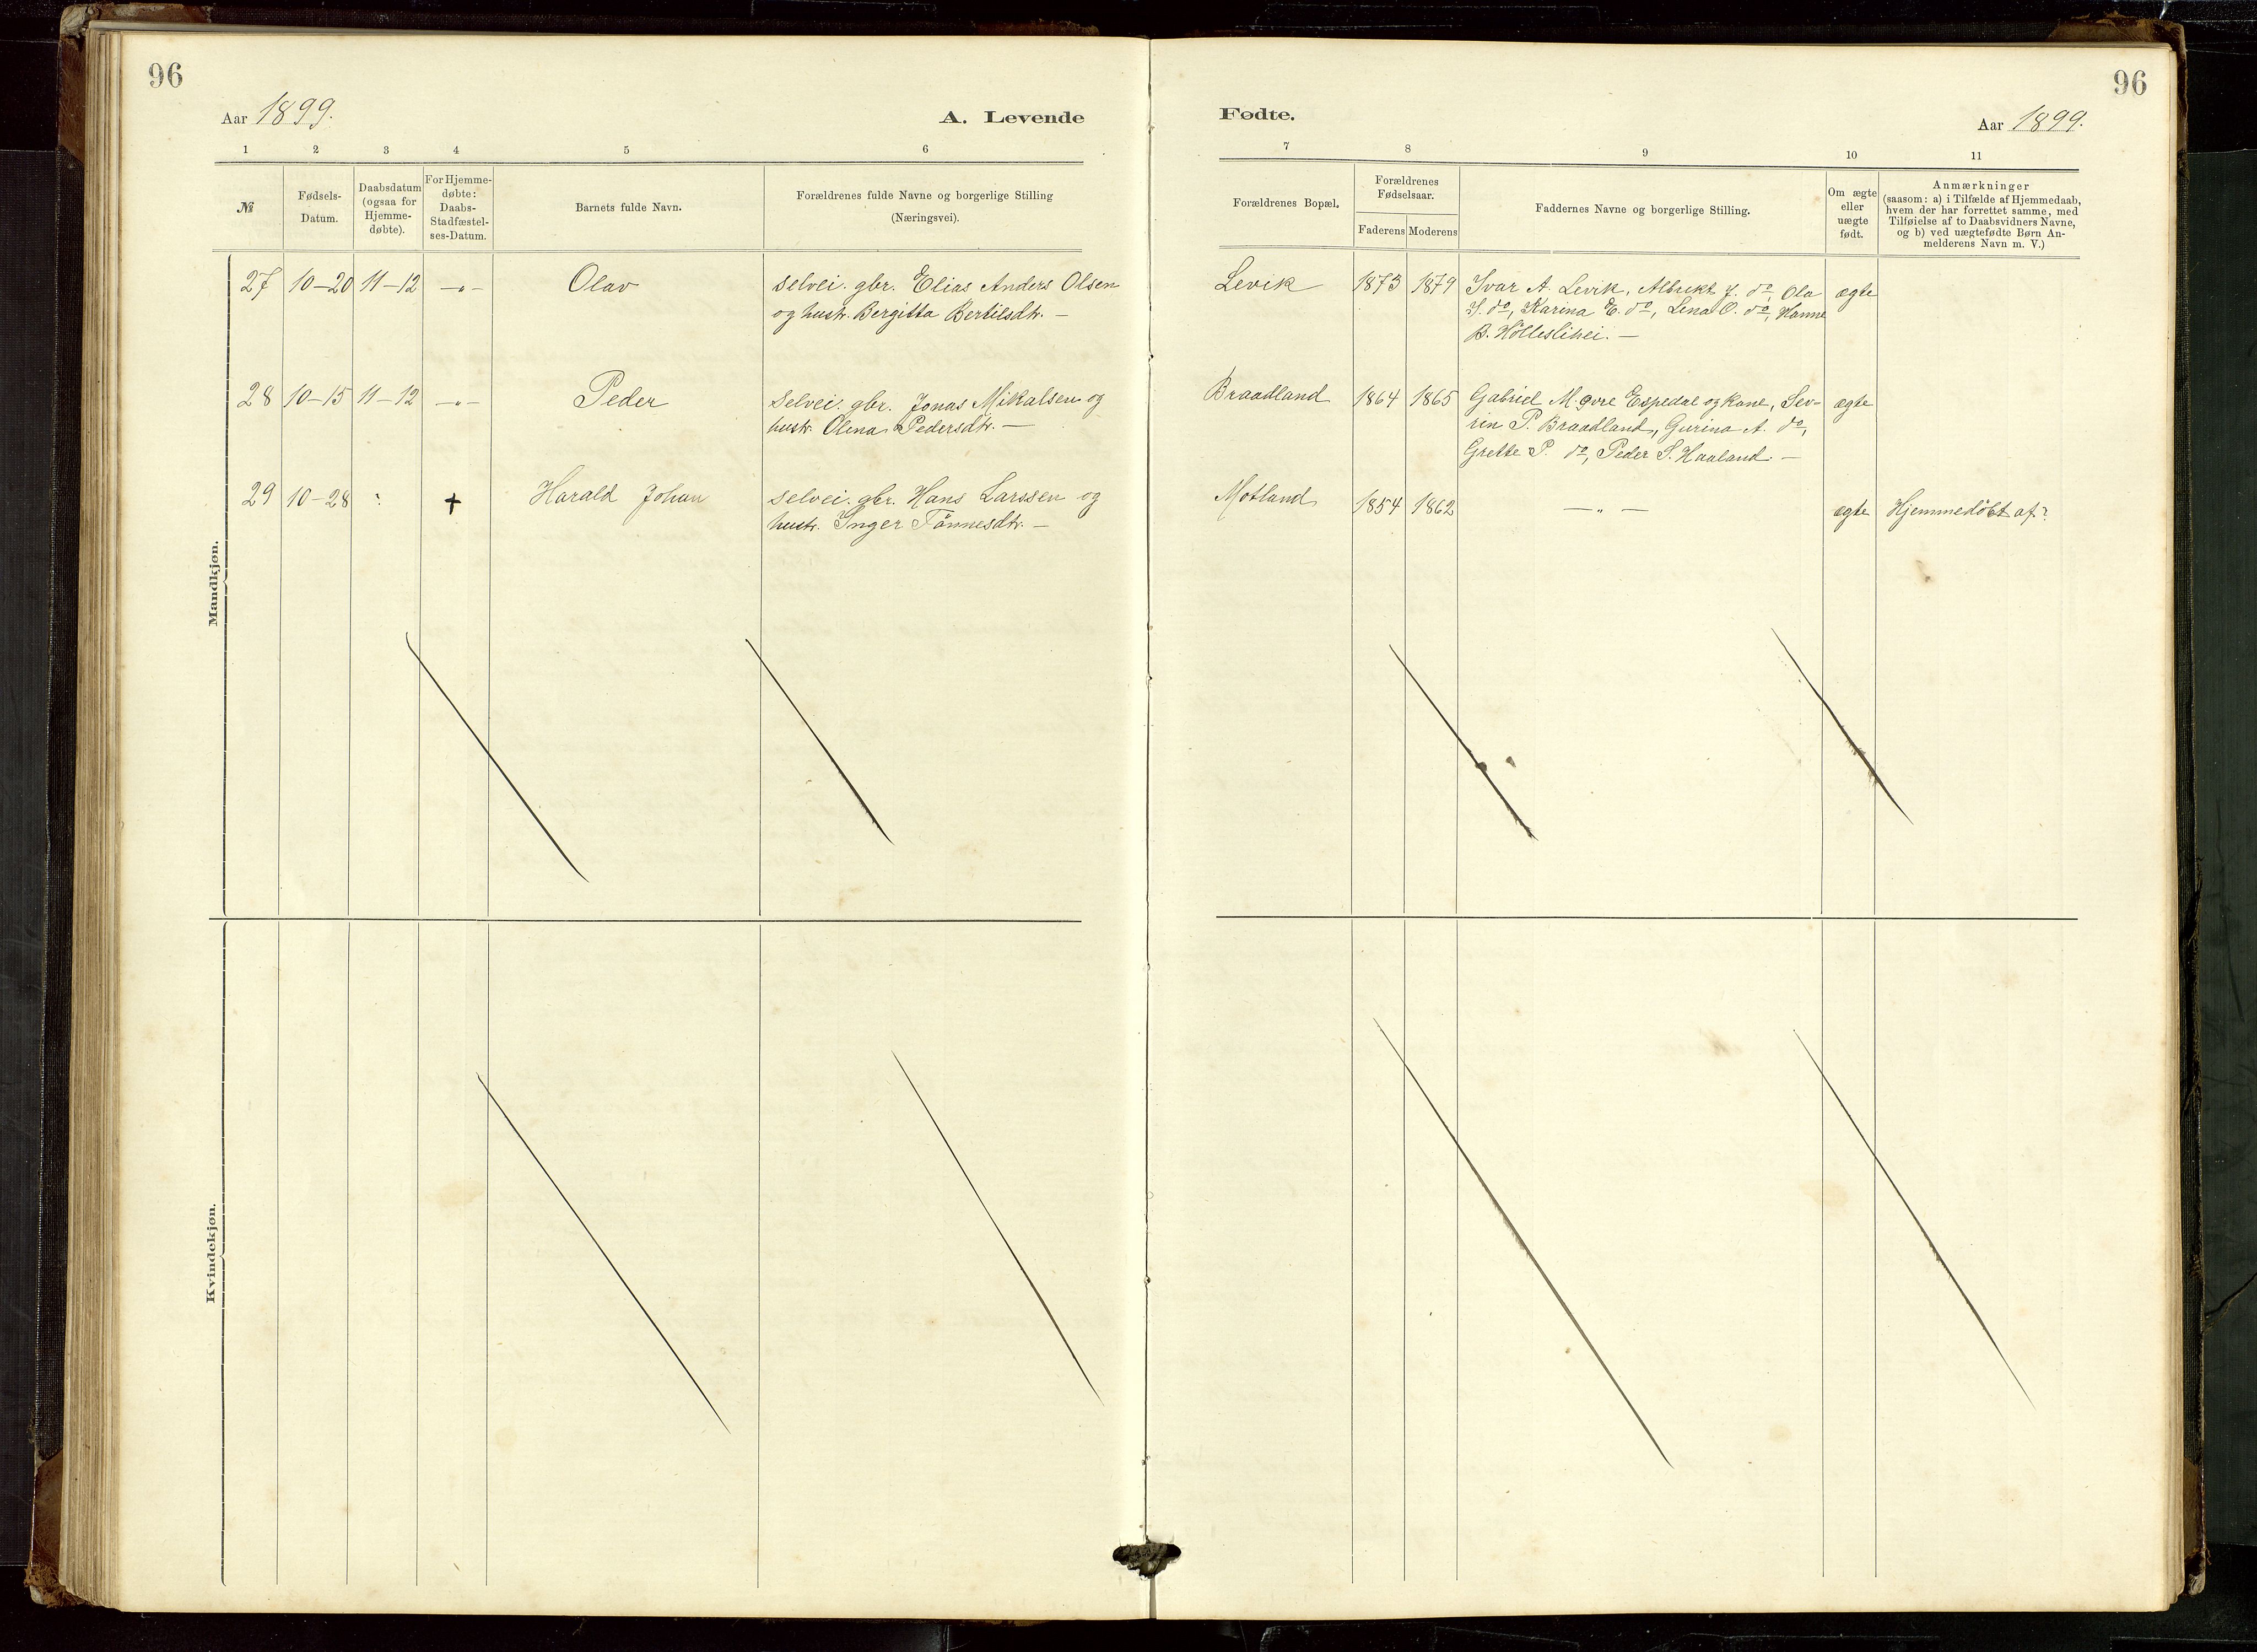 96
96
Aar 1899.
A. Levende
Fødte.
Aar 1899.
1 2 3 4 5 6
7 8 9 10 11
№
Fødsels-
Datum.
Daabsdatum
(ogsaa for
Hjemme-
døbte).
For Hjemme-
døbte:
Daabs-
Stadfæstel-
ses-Datum.
Barnets fulde Navn.
Forældrenes fulde Navne og borgerlige Stilling
(Næringsvei).
Forældrenes Bopæl.
Forældrenes
Fødselsaar.
Faderens Moderens
Faddernes Navne og borgerlige Stilling.
Om ægte
eller
uægte
født.
Anmærkninger
(saasom: a) i Tilfælde af Hjemmedaab,
hvem der har forrettet samme, med
Tilføielse af to Daabsvidners Navne,
og b) ved uægtefødte Børn An-
melderens Navn m. V.)
Mandkjøn.
27 10-20 11-12 -„- Olav selvei. gbr. Elias Anders Olsen
og hustr. Bergitta Bertilsdtr. -
Levik 1873 1879 Ivar A. Levik, Albrikt J. do, Ola
I. do, Karina E. do, Lena O. do, Hanne
B. Hölleslihei. -
ægte
28 10-15 11-12 -„- Peder selvei. gbr. Jonas Mikalsen og
hustr. Olena Pedersdtr. -
Braadland 1864 1865 Gabriel M. øvre Espedal og kone, Sev-
rin P. Braadland, Gurina A. do,
Grette P. do, Peder S. Haaland. -
ægte
29 10-28 : + Harald Johan selvei. gbr. Hans Larssen og
hustr. Inger Tönnesdtr. -
Motland 1854 1862 -„- ægte Hjemmedöbt af?
Kvindekjøn.